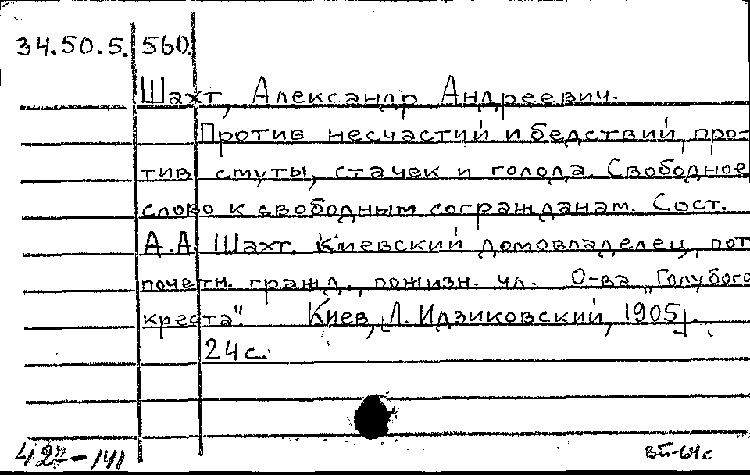 34.50.5. 560.
Шахт, Александр Андреевич.
Против несчастий и бедствий, про-
тив смуты, стачек и голода. Свободное
слово к свободным согражданам. Сост.
А.А. Шахт. Киевский домовладелец, пот.
почетн. гражд., пожизн. чл. О-ва „Голубого
креста". Киев, Л. Идзиковский, 1905].
24 с.
427-141